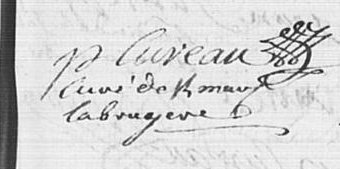 p Cureau
Curé de St marc
labrugere